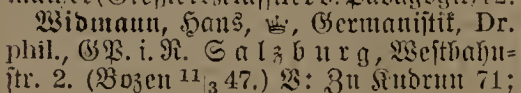 Widmann, Hans, Germanistik, Dr.
phil., GP. i. R. Salzburg, Westbahn=
str. 2. (Bozen 11|3 47.) V: Zu Kudrun 71;